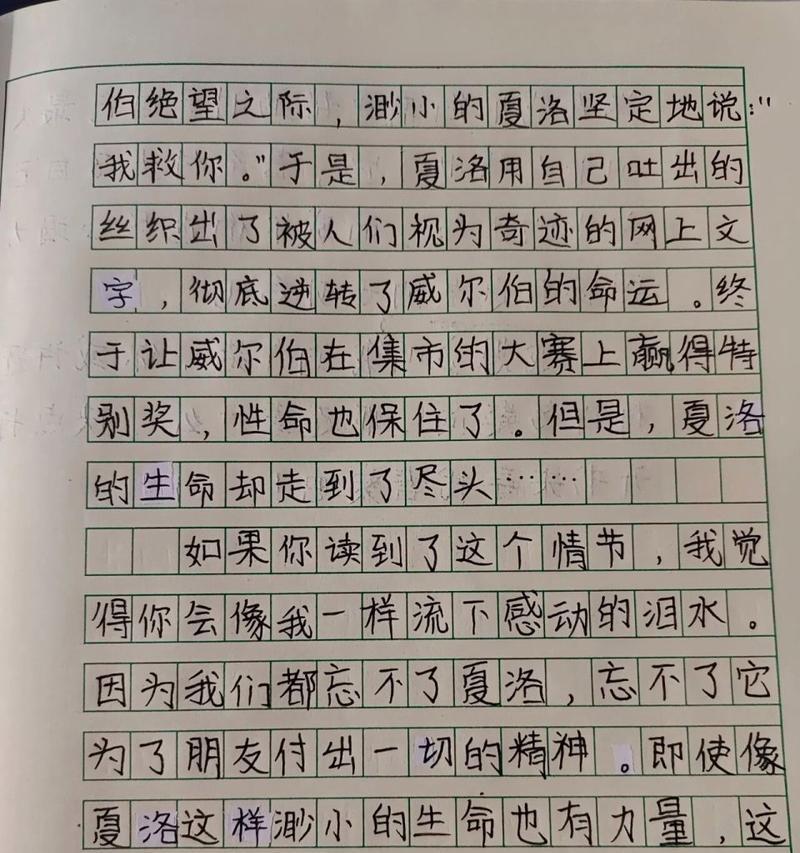 伯绝望之际，渺小的夏洛坚定地说："
我救你。"于是，夏洛用自己吐出的
丝织出了被人们视为奇迹的网上文
字，彻底逆转了威尔伯的命运。终
于让威尔伯在集市的大赛上赢得特
别奖，性命也保住了。但是，夏洛
的生命却走到了尽头……
如果你读到了这个情节，我觉
得你会像我一样流下感动的泪水。
因为我们都忘不了夏洛，忘不了它
为了朋友付出一切的精神。即使像
夏洛这样渺小的生命也有力量，这